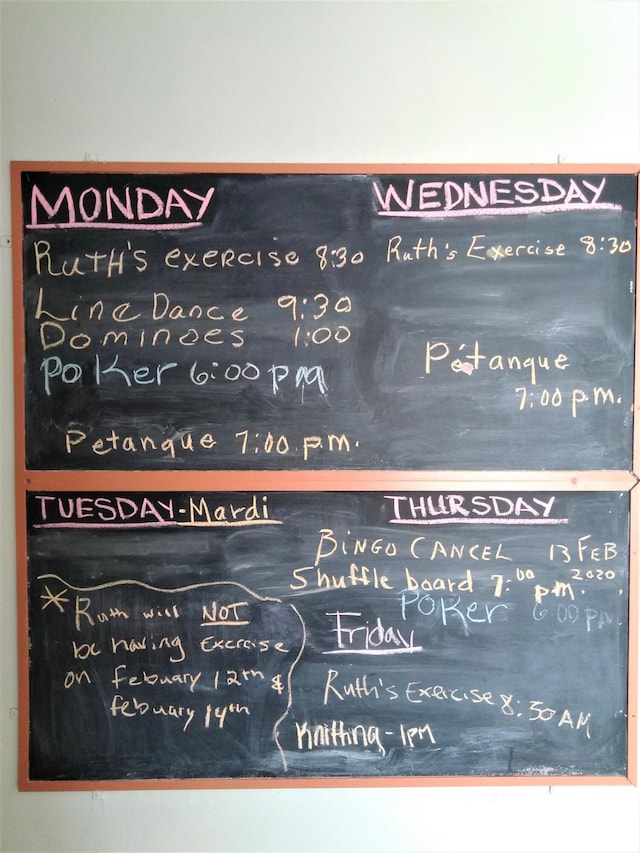 MONDAY
RUTH'S exeRCise 8:30
Line Dance 9:30
Dominoes 1:00
Poker 6:00 pm
Petanque 7:00 p.m.
WEDNESDAY
Ruth's Exercise 8:30
Pétanque
7:00 p.m.
TUESDAY-Mardi
* Ruth will NOT
be having Exercise
on febuary 12th &
febuary 14th
THURSDAY
BINGO CANCEL 13 FEB
2020
Shuffle board 7:00 p.m.
POKer 6:00 PM
Friday
Ruth's Exercise 8:30 AM
Knitting - 1PM